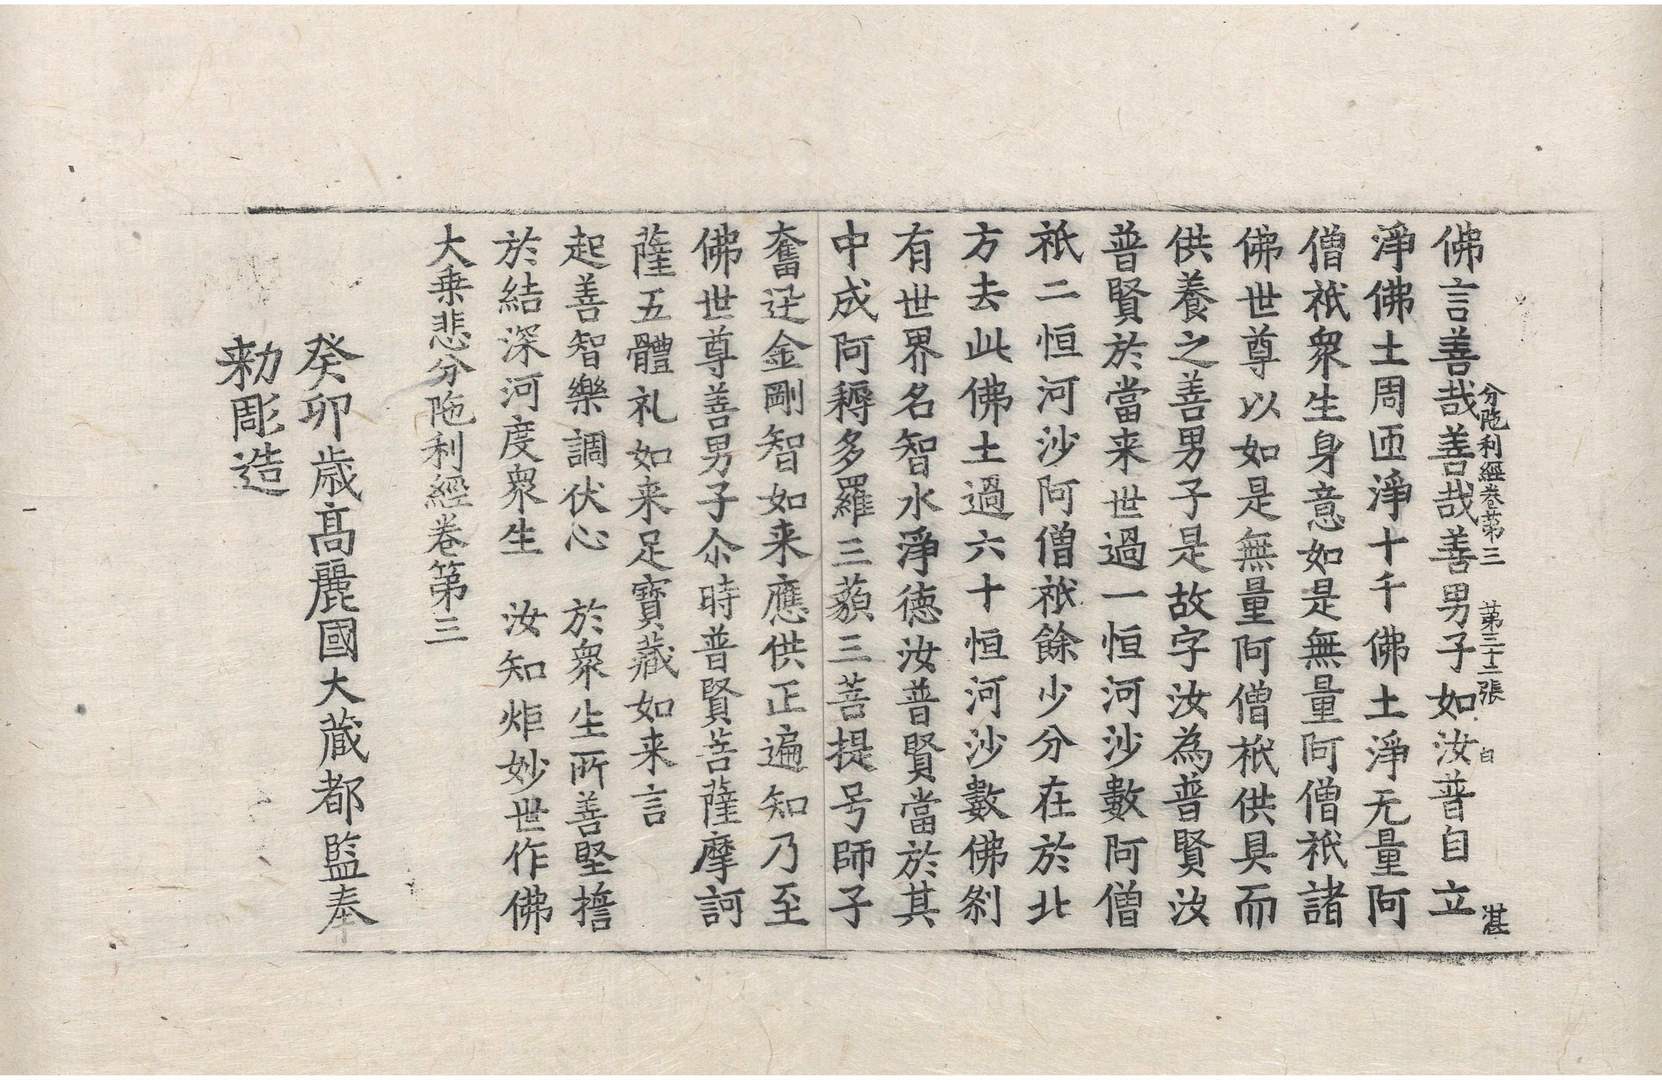 分陁利經卷第三 第三十二張 目 湛
佛言善哉善哉善哉善男子如汝普自立
淨佛土周匝淨十千佛土淨无量阿
僧祇衆生身意如是無量阿僧祇諸
佛世尊以如是無量阿僧祇供具而
供養之善男子是故字汝為普賢汝
普賢於當来世過一恒河沙數阿僧
祇二恒河沙阿僧祇餘少分在於北
方去此佛土過六十恒河沙數佛刹
有世界名智水淨德汝普賢當於其
中成阿耨多羅三藐三菩提号師子
奮迅金剛智如来應供正遍知乃至
佛世尊善男子尒時普賢菩薩摩訶
薩五體礼如来足寶藏如来言
起善智樂調伏心 於衆生所善堅擔
於結深河度衆生 汝知炬妙世作佛
大乗悲分陁利經卷第三
癸卯歲高麗國大藏都監奉
勑彫造